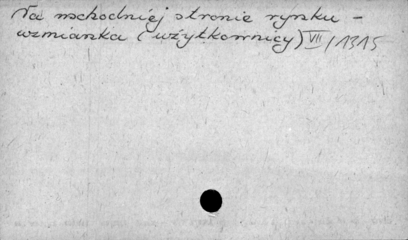 Na wschodniej stronie rynku –
wzmianka (użytkownicy) VII / 1315